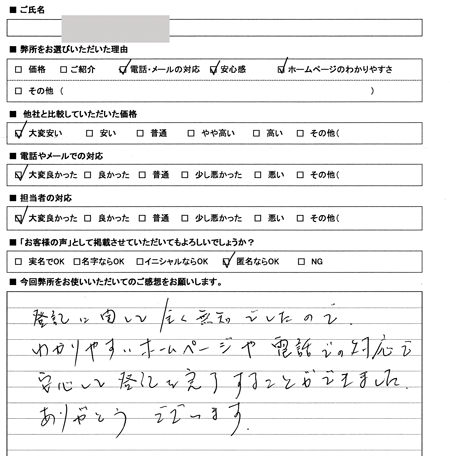 ■ ご氏名
■ 弊所をお選びいただいた理由
□ 価格 □ ご紹介 ☑ 電話・メールの対応 ☑ 安心感 ☑ ホームページのわかりやすさ
□ その他 ( )
■ 他社と比較していただいた価格
☑ 大変安い □ 安い □ 普通 □ やや高い □ 高い □ その他(
■ 電話やメールでの対応
☑ 大変良かった □ 良かった □ 普通 □ 少し悪かった □ 悪い □ その他(
■ 担当者の対応
☑ 大変良かった □ 良かった □ 普通 □ 少し悪かった □ 悪い □ その他(
■ 「お客様の声」として掲載させていただいてもよろしいでしょうか?
□ 実名でOK □ 名字ならOK □ イニシャルならOK ☑ 匿名ならOK □ NG
■ 今回弊所をお使いいただいてのご感想をお願いします。
登記に関して全く無知でしたので、
わかりやすいホームページや電話での対応で
安心して登記を完了することができました。
ありがとうございます。